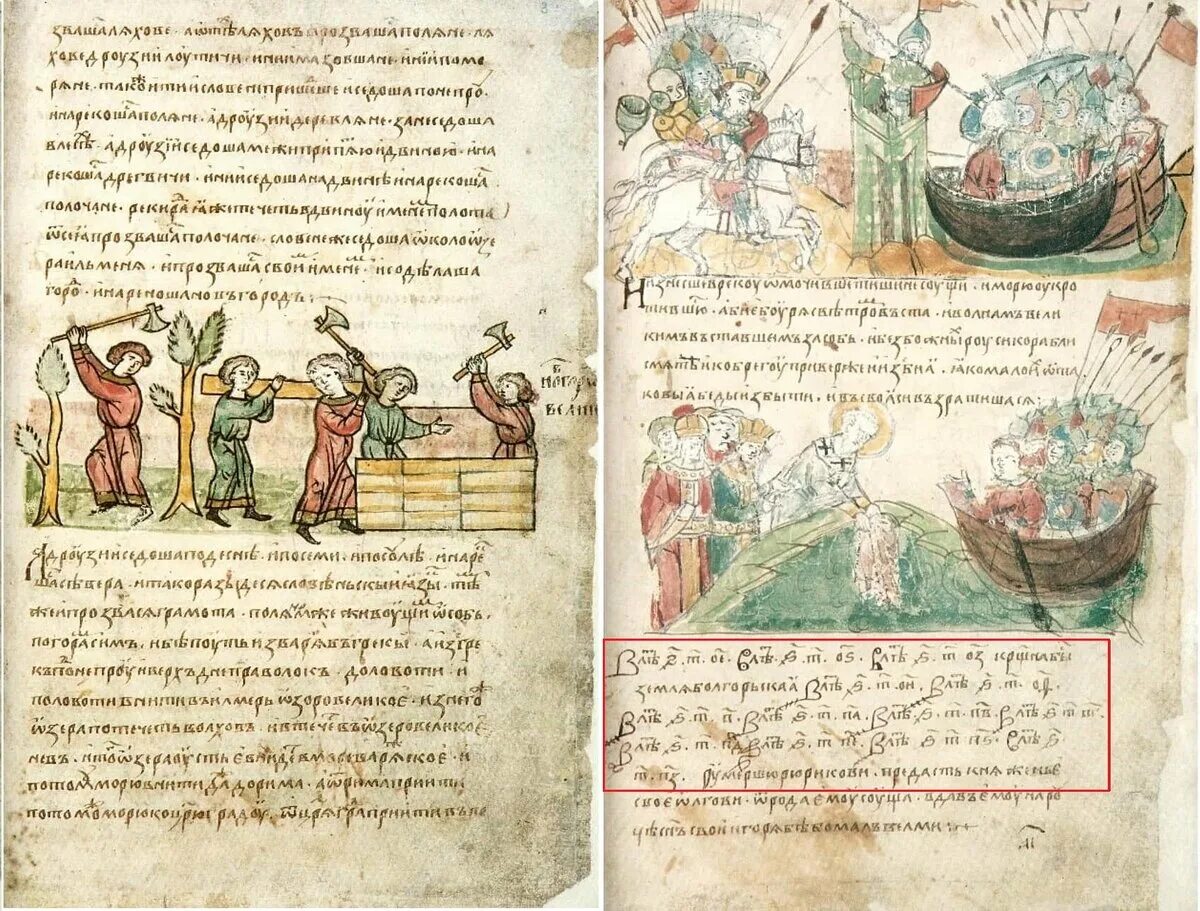 звашаляхове · аѿтѣⷯляховъпрозвашаполяне · ля
ховедроузилоутичи · инимазовшане · иниипомо
ряне · такоⷤитиисловенепришеⷣшеиседошапонепроу
инарекошаⷭполяне · адроузиидеревляне · занеседоша
влесѣⷯ · адроузииседошамежиприпѣⷮюидвиною · ина
рекошаⷭдреговичи · инииседошанадвинѣинарекошаⷭ
полочане · рекираⷣяжетечетьвдвиноуименеⷨполота
ѿсеяпрозвашаⷭполочане · словенежеседошаѡколоѡзе
раильменя · ипрозвашаⷭсвоиⷨименеⷨ · исодѣлаша
гороⷣ · инарекошановъгородъ:
Адроузииседошаподеснѣ · ипосеми · ипосоулѣ · инаре
шаⷭсѣвера · итакоразыдесясловѣньскыиязы · тѣⷨ
жеипрозвасяграмота · поляноⷨжеживоущиⷨѡсобѣ
погораⷨсимъ · ибѣпоутьизварягъвгреки · аизгре
къпонепроуивверхъднеправолокъ · доловоти · и
половотивнитивъилмерьѡзеровеликое · изнегоⷤ
ѡзерапотечетьволхов · ивтечевъѡзеровеликоеⷤ
нево · итогѡⷤѡзераоустьеⷡнидевмореваряⷤское · и
потомоⷨморювнитидаⷤдорима · аѿримаприити
потомоⷨморюкоцрⷭюградоу · ѿцряⷭграⷣприитивъпо
Низнесшеврекоуѡмочившетишинесоущи · иморюоукро
тившюⷭ · абиебоурясвѣтроⷨвъста · иволнамъвели
кимъвъставшимъзасобь · ибезбожныⷯроусикорабли
смятѣикобрегоупривержеиизби · якомалоиⷯѿта
ковыябедыизбыти · ивъсвоясивъзвратишася:
В лѣⷮ ѕ҃. т҃. ое҃. В лѣⷮ ѕ҃. т҃. оѕ҃. В лѣⷮ ѕ҃. т҃ оз҃ крⷭщнабы
земляболгорьская В лѣⷮ ѕ҃. т҃. ои҃. В лѣⷮ ѕ҃. т҃. оѳ҃.
В лѣⷮ ѕ҃. т҃. п҃. В лѣⷮ ѕ҃. т҃. па҃. В лѣⷮ ѕ҃. т҃ пв҃. В лѣⷮ ѕ҃ т҃ пг҃.
В лѣⷮ ѕ҃. т҃. пд҃ В лѣⷮ ѕ҃. т҃. пе҃. В лѣⷮ ѕ҃ т҃ пѕ҃. В лѣⷮ ѕ҃.
т҃. пз҃. ѹмершюрюрикови · предастькняженье
своеѡлгови · ѿродаемоусоуща · вдавъемоунароу
цѣсн҃ъсвоиигорябѣбомалъвелми: